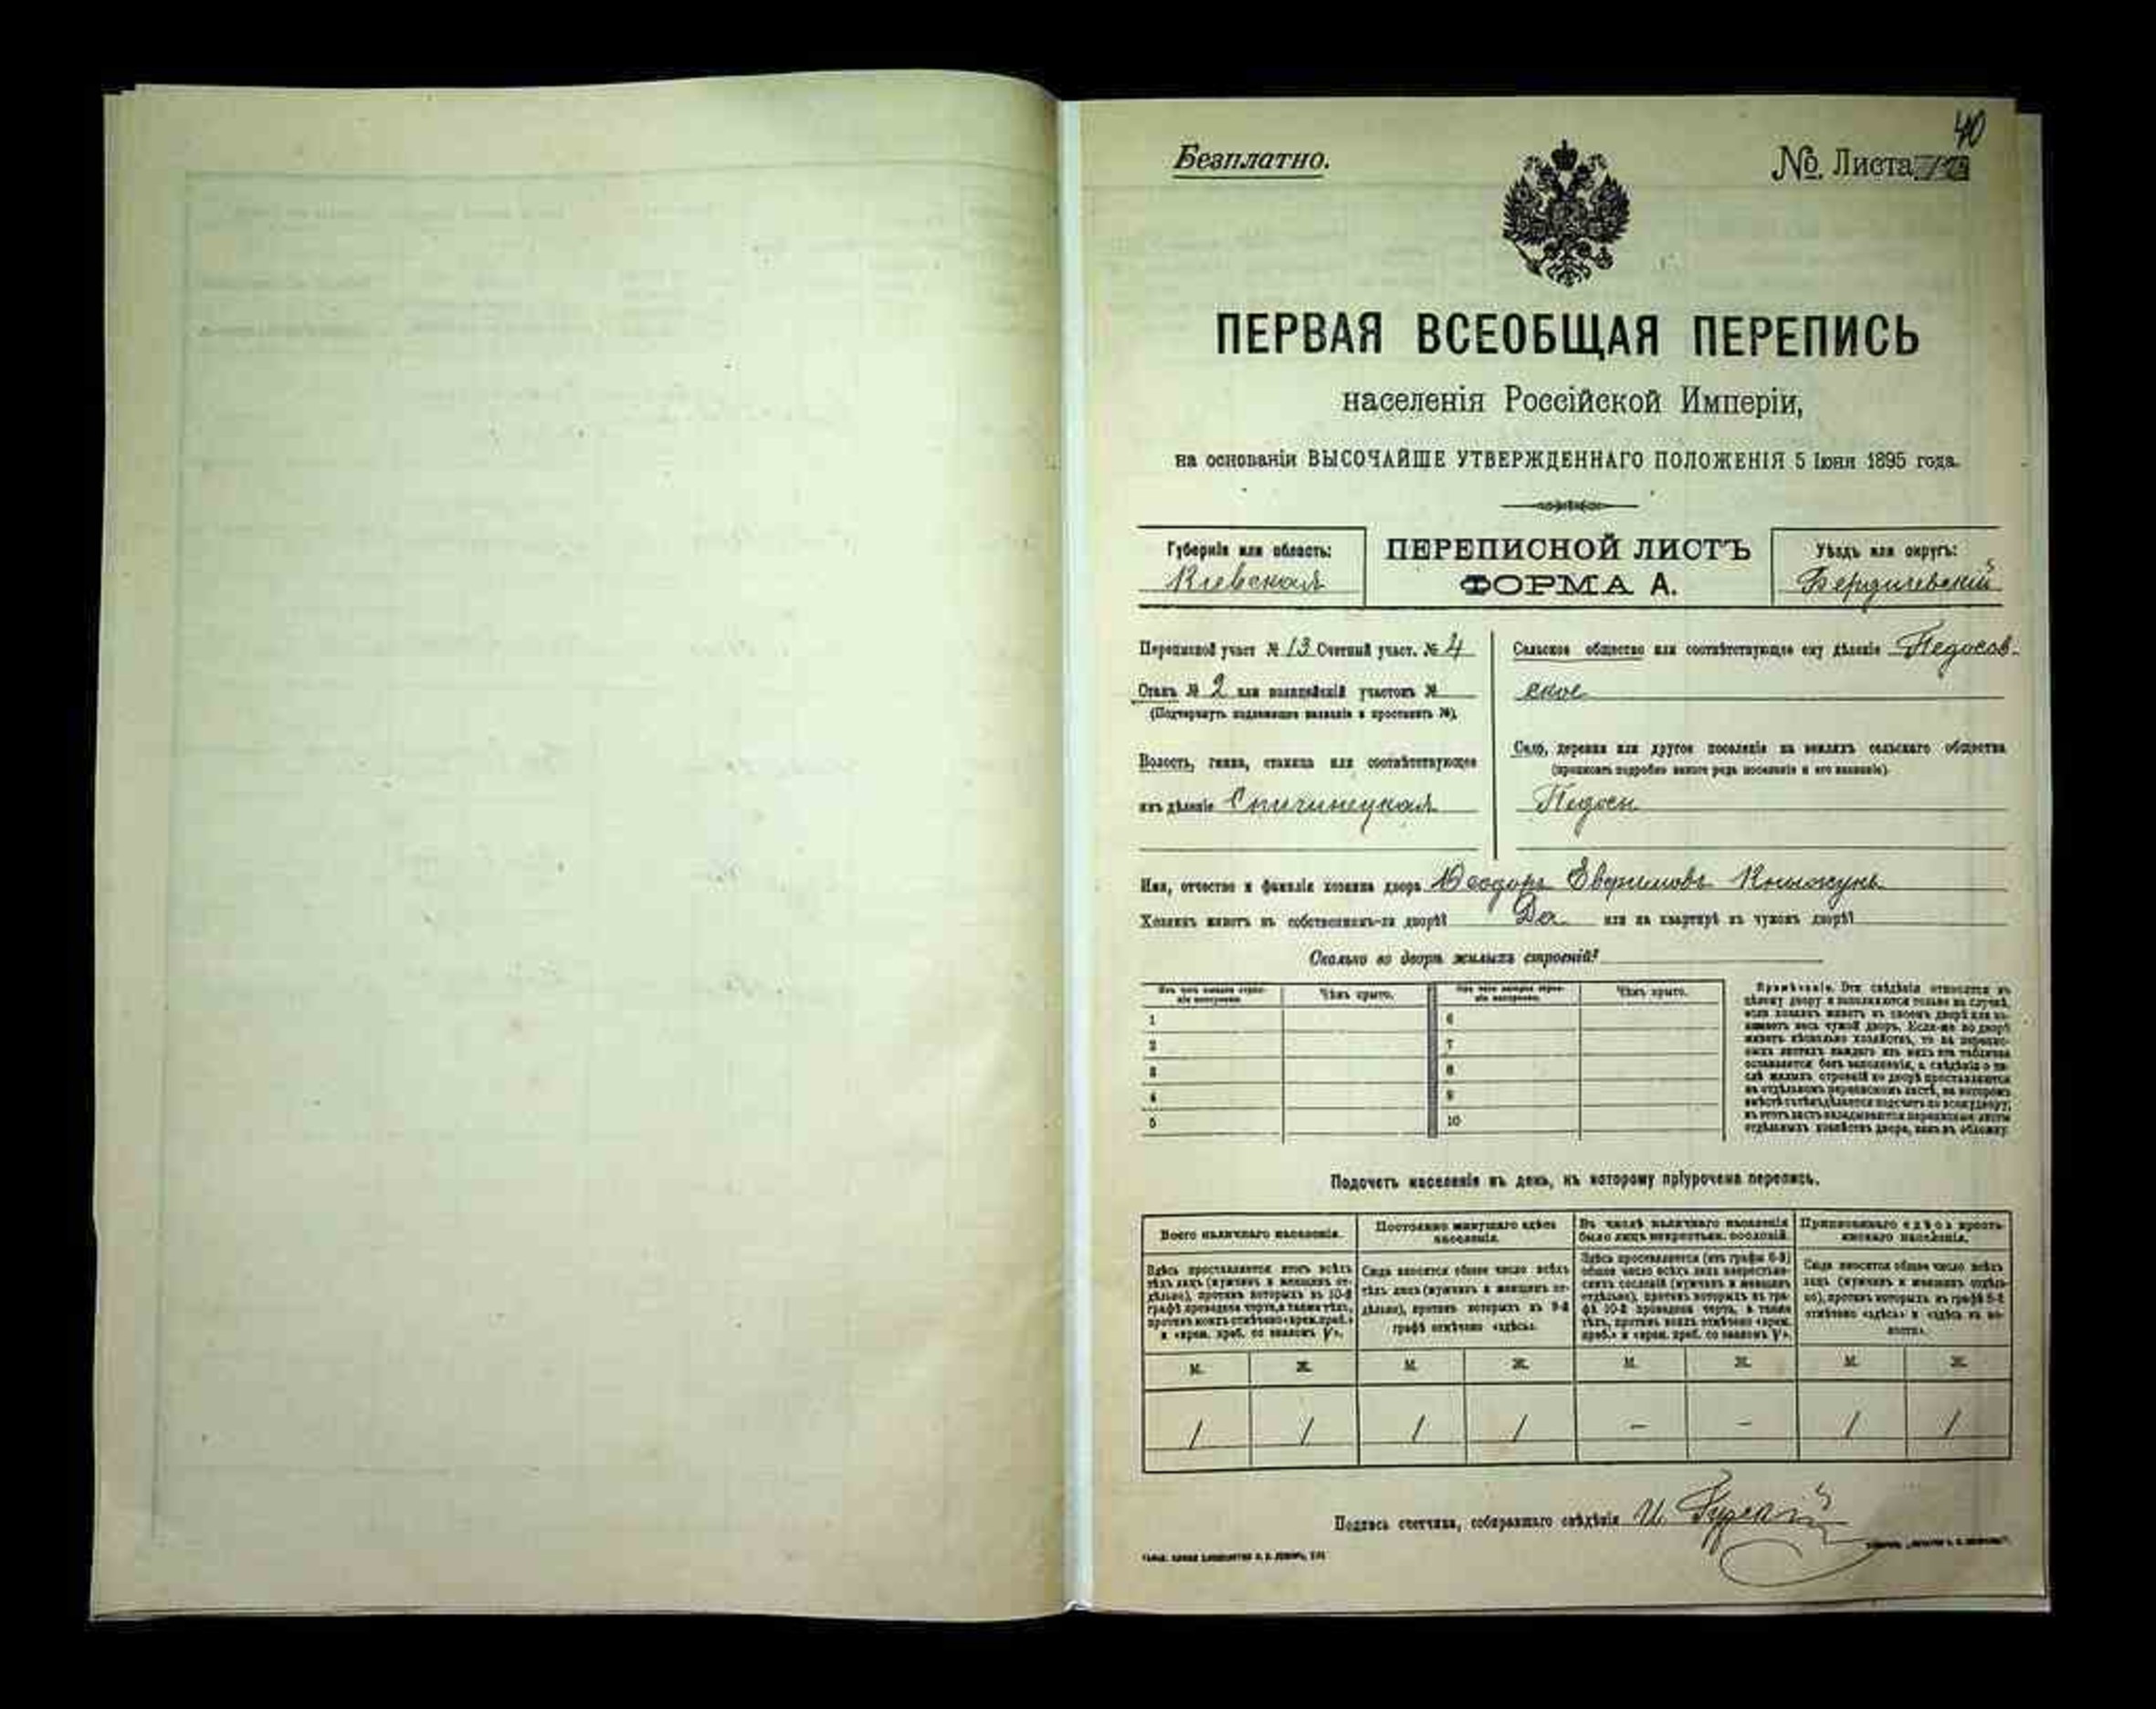 40
Безплатно.
№ Листа
ПЕРВАЯ ВСЕОБЩАЯ ПЕРЕПИСЬ
населенія Россійской Имперіи,
на основаніи ВЫСОЧАЙШЕ УТВЕРЖДЕННАГО ПОЛОЖЕНІЯ 5 Іюня 1895 года.
Губернія или область:
Кіевская
ПЕРЕПИСНОЙ ЛИСТЪ
ФОРМА А.
Уѣздъ или округъ:
Бердичевскій
Переписной участ. № 13 Счетный участ. № 4
Станъ № 2 или полицейскій участокъ №
(Подчеркнуть надлежащее названіе и проставить №).
Волость, гмина, станица или соотвѣтствующее
имъ дѣленіе Спичинецкая
Сельское общество или соотвѣтствующее ему дѣленіе Педосов-
ское
Село, деревня или другое поселеніе на земляхъ сельскаго общества
(прописать подробно какого рода поселеніе и его названіе).
Педосы
Имя, отчество и фамилія хозяина двора Ѳеодоръ
Хозяинъ живетъ въ собственномъ-ли дворѣ? Да или на квартирѣ въ чужомъ дворѣ?
Сколько во дворѣ жилыхъ строеній?
Изъ чего каждое строеніе построено.
Чѣмъ крыто.
Изъ чего каждое строеніе построено.
Чѣмъ крыто.
1
2
3
4
5
6
7
8
9
10
Примѣчаніе. Эти свѣдѣнія относятся къ
цѣлому двору и заполняются только въ случаѣ,
если хозяинъ живетъ въ своемъ дворѣ или за-
нимаетъ весь чужой дворъ. Если-же во дворѣ
живетъ нѣсколько хозяйствъ, то на перепис-
ныхъ листахъ каждаго изъ нихъ эта табличка
оставляется безъ заполненія, а свѣдѣнія о чи-
слѣ жилыхъ строеній во дворѣ проставляются
на отдѣльномъ переписномъ листѣ, на которомъ
вмѣстѣ съ тѣмъ дѣлается подсчетъ по всему двору;
въ этотъ листъ вкладываются переписные листы
отдѣльныхъ хозяйствъ двора, какъ въ обложку.
Подсчетъ населенія въ день, къ которому пріурочена перепись.
Всего наличнаго населенія.
Постоянно живущаго здѣсь
населенія.
Въ числѣ наличнаго населенія
было лицъ некрестьян. сословій.
Приписаннаго здѣсь кресть-
янскаго населенія.
Здѣсь проставляется итогъ всѣхъ
тѣхъ лицъ (мужчинъ и женщинъ от-
дѣльно), противъ которыхъ въ 10-й
графѣ проведена черта, а также тѣхъ,
противъ коихъ отмѣчено «врем. преб.»
и «врем. преб. со знакомъ V».
Сюда вносится общее число всѣхъ
тѣхъ лицъ (мужчинъ и женщинъ от-
дѣльно), противъ которыхъ въ 9-й
графѣ отмѣчено «здѣсь».
Здѣсь проставляется (изъ графы 6-й)
общее число всѣхъ лицъ некрестьян-
скихъ сословій (мужчинъ и женщинъ
отдѣльно), противъ которыхъ въ гра-
фѣ 10-й проведена черта, а также
тѣхъ, противъ коихъ отмѣчено «врем.
преб.» и «врем. преб. со знакомъ V».
Сюда вносится общее число всѣхъ
лицъ (мужчинъ и женщинъ отдѣль-
но), противъ которыхъ въ графѣ 8-й
отмѣчено «здѣсь» и «здѣсь въ во-
лости».
М. Ж. М. Ж. М. Ж. М. Ж.
1 1 1 1 – – 1 1
Подпись счетчика, собиравшаго свѣдѣнія И.